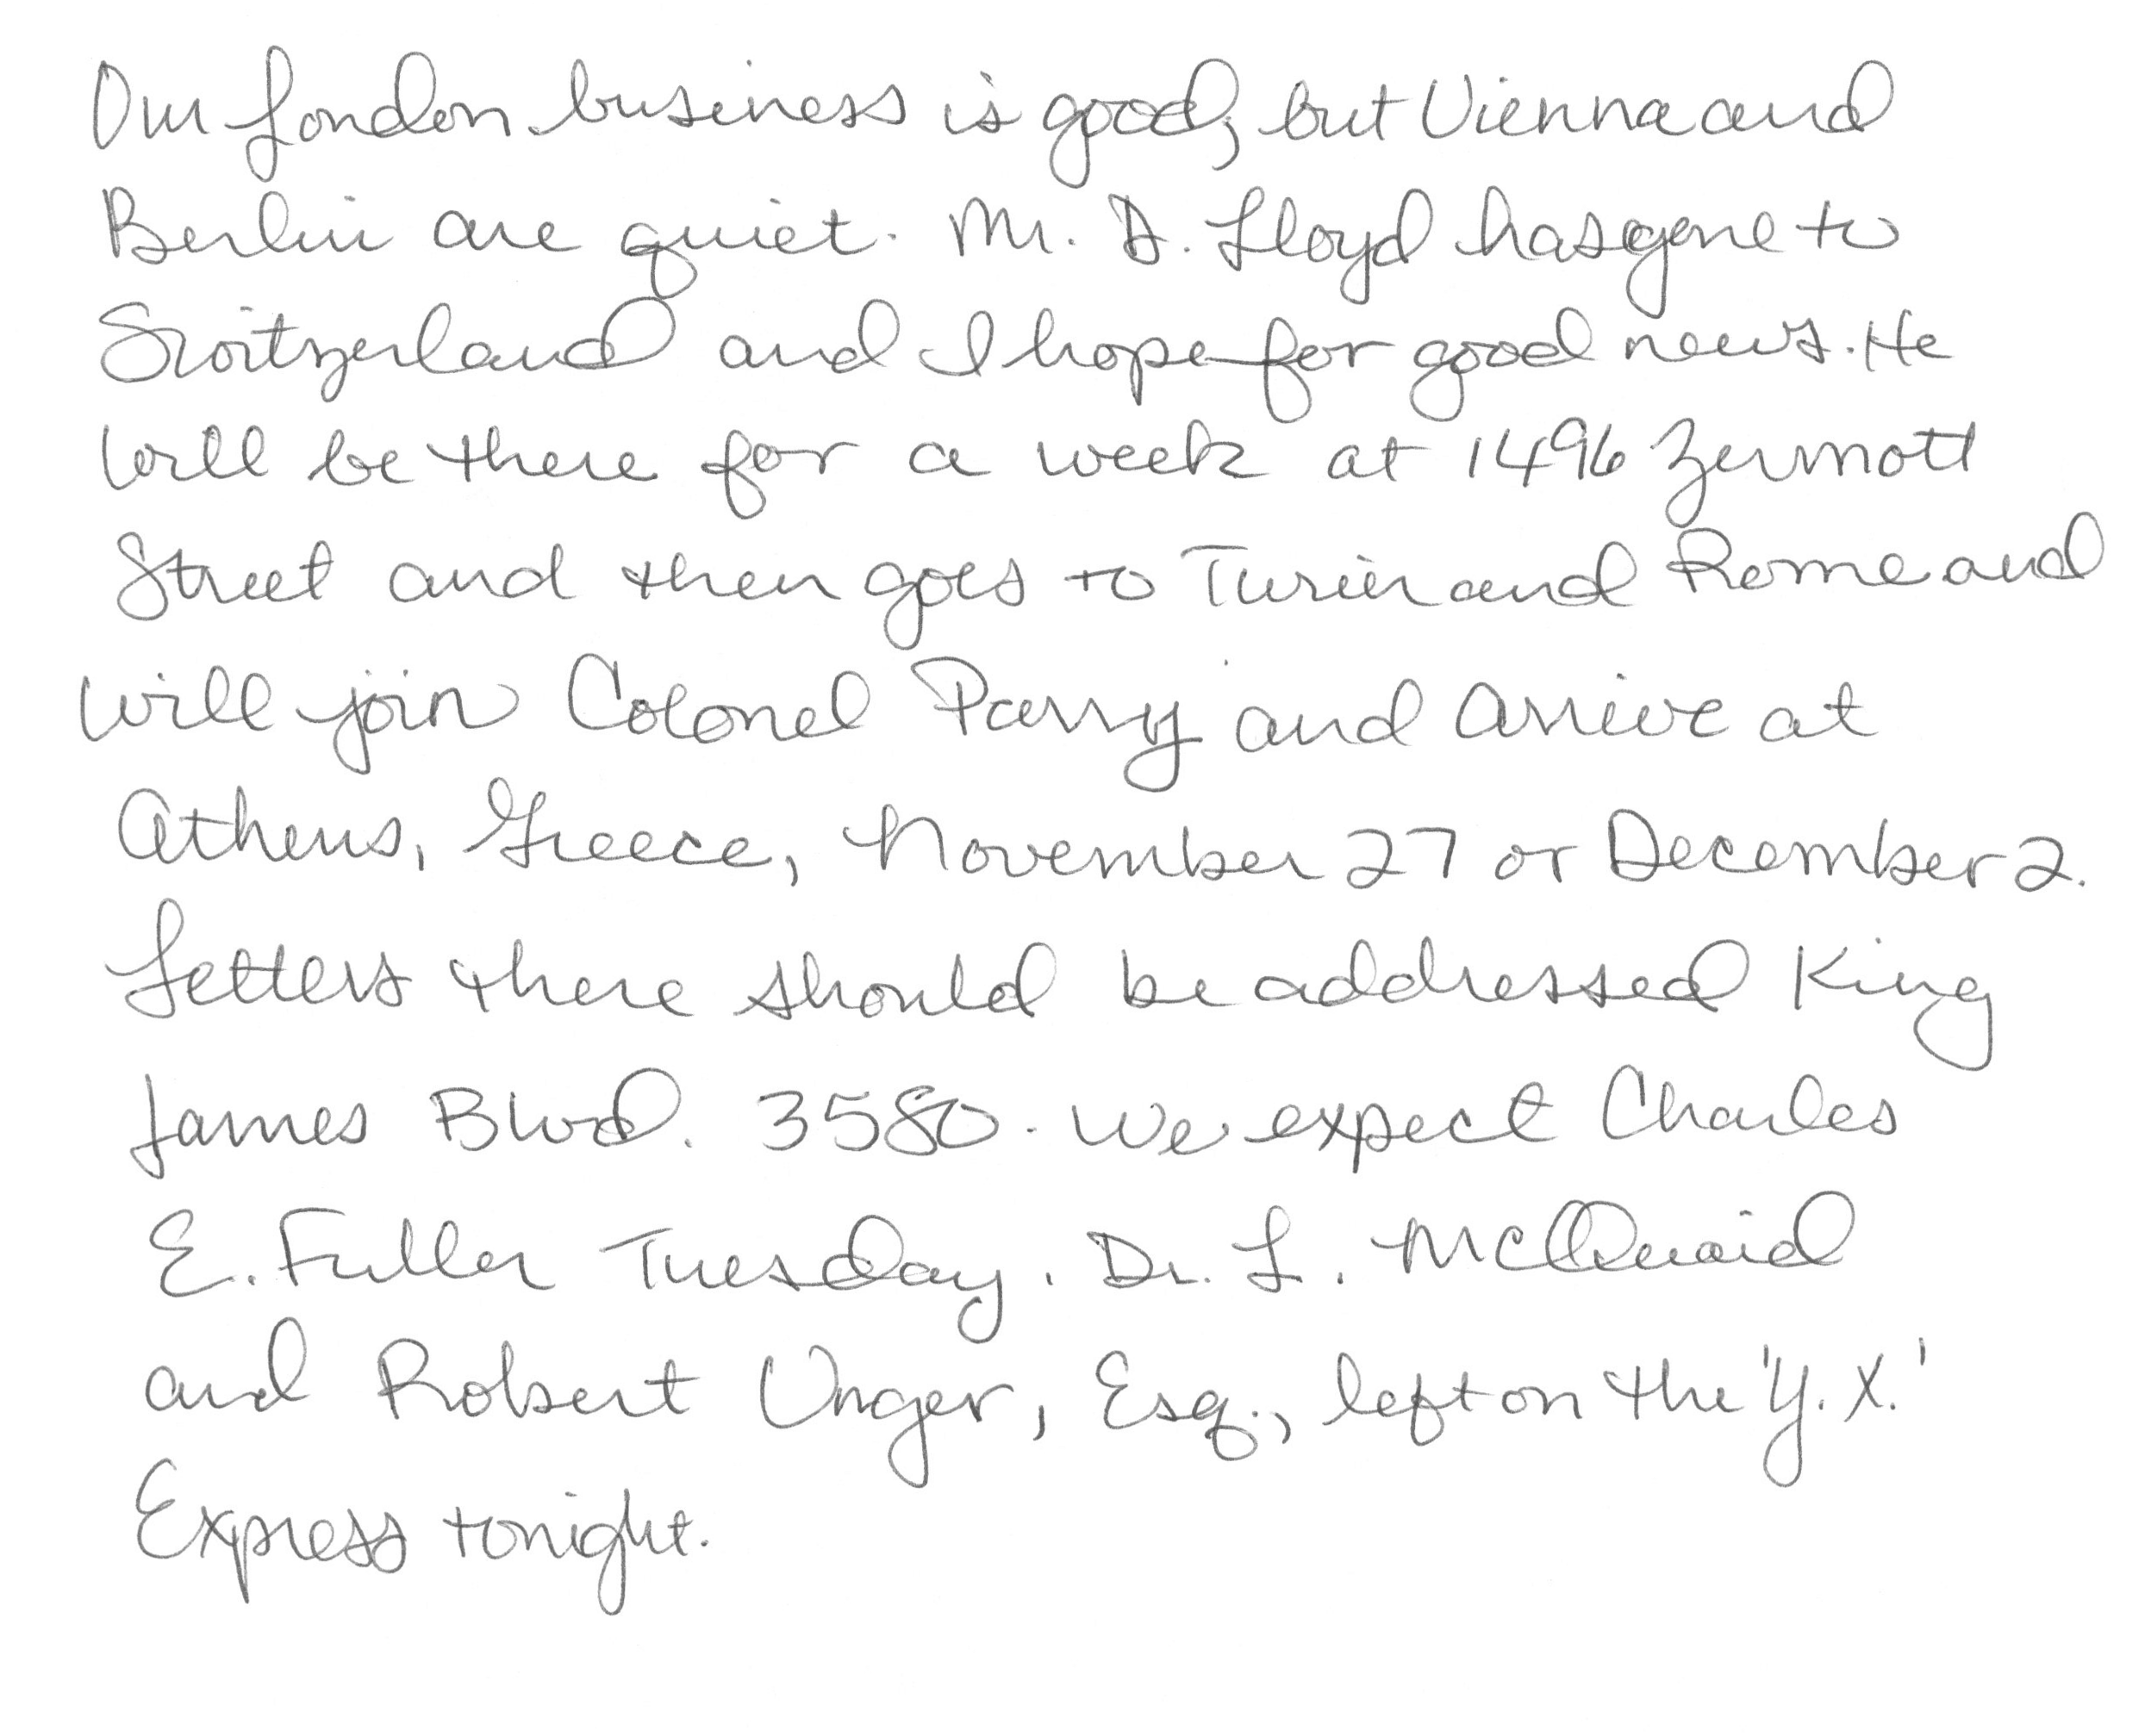 Our London business is good, but Vienna and
Berlin are quiet. Mr. D. Lloyd has gone to
Switzerland and I hope for good news. He
will be there for a week at 1496 Zermott
Street and then goes to Turin and Rome and
will join Colonel Parry and arrive at
Athens, Greece, November 27 or December 2.
Letters there should be addressed King
James Blvd. 3580. We expect Charles
E. Fuller Tuesday. Dr. L. McQuaid
and Robert Unger, Esq., left on the 'Y.X.'
Express tonight.